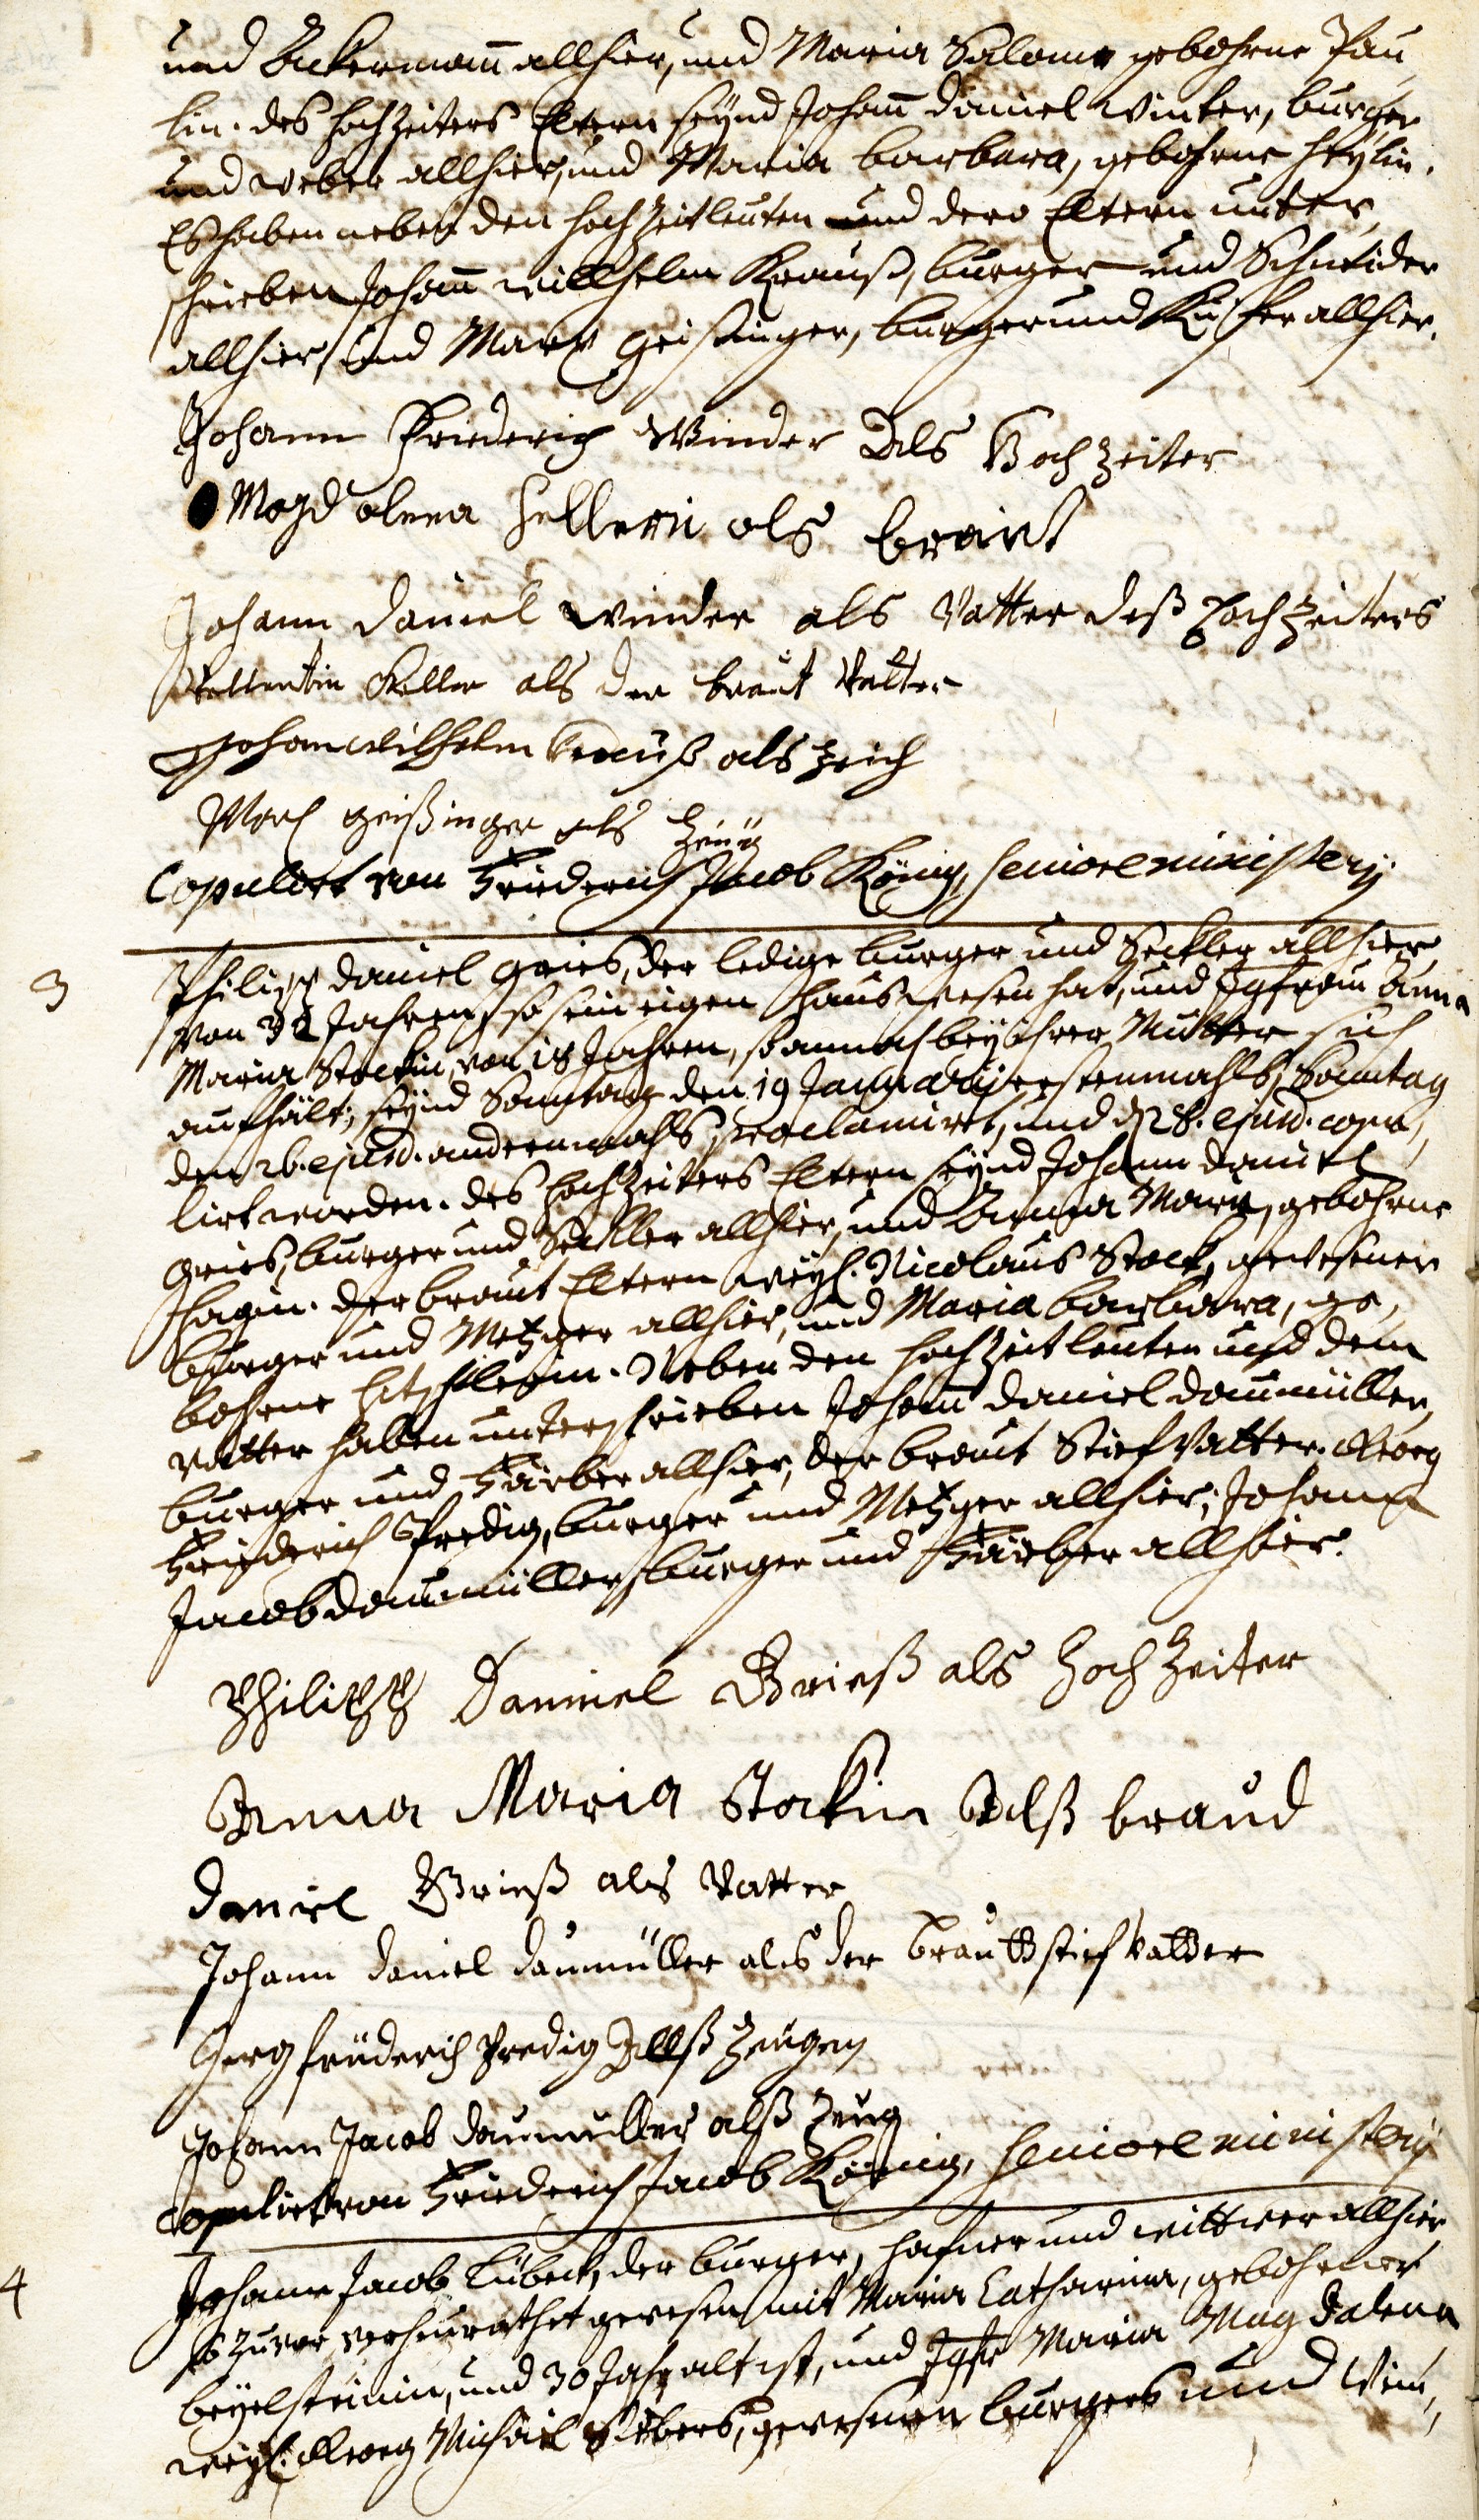 und Ackermann allhier, und Maria Salome gebohrne Pau,
lin. des Hochzeiters Eltern seynd Johann Daniel Winter, burger
und Weber allhier, und Maria Barbara, gebohrne Heylin.
Es haben neben den Hochzeitleuten und dero Eltern unter,
schrieben Johann Willhelm Krauß, burger und Schneider
allhier, und Marx Geisinger, burger und Küfer allhier.
Johann Friederich Winder Als Hochzeiter
Magdalena Kellerin als braut
Johann Daniel Winder als Vatter deß Hochzeiters
Vallentin Keller als der braut Vatter
Johan Wilhelm Krauß als Zeich
Marx Geißinger als Zeug
Copulirt von Friederich Jacob König, Seniore ministerij
3
Philipp Daniel Gries, der ledige burger und Seckler allhier
von 32 Jahren, so sein eigen Hauswesen hat, und Jgfrau Anna
Maria Stockin, von 18 Jahren, so annoch bey ihrer Mutter sich
aufhält; seynd Sonntag den 19 Januarij erstenmahls, Sonntag
den 26. ejusd. andernmahls, proclamiret, und d 28. ejusd. copu,
lirt worden. des Hochzeiters Eltern seynd Johann Daniel
Gries, burger und Seckler allhier, und Anna Maria, gebohrne
Hagin. der braut Eltern weyl. Nicolaus Stock, gewesener
burger und Metzger allhier, und Maria Barbara, ge,
bohrne . Neben den Hochzeitleuten und dem
Vatter haben unterschrieben Johann Daniel Daumüller,
burger und Färber allhier, der braut Stiefvatter. Georg
Friederich Predig, burger und Metzger allhier; Johann
Jacob Daumüller, burger und Färber allhier.
Philipp Daniel Grieß als Hochzeiter
Anna Maria Stockin Alß braud
Daniel Grieß als Vatter
Johann Daniel Daumüller als der Brautt stief Vatter
Gerg friderich Predig Allß Zeugen
Johann Jacob Daumüller alß Zeug
Copulirt von Friederich Jacob König, Seniore ministerij
4
Johann Jacob Lübeck, der burger, Hafner und Wittwer allhier
so zuvor verheurathet gewesen mit Maria Catharina, gebohrner
Beyelsteinin, und 30 Jahr alt ist, und Jgfr Maria Magdalena
weyl. Georg Michäel Webers, gewesenen burgers und Wein,